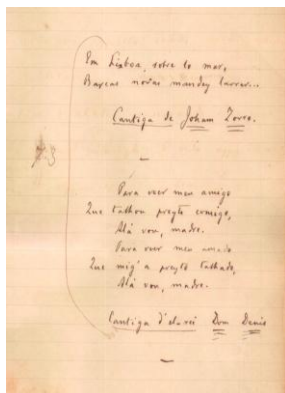 Em Lixboa, sobre lo mar,
Barcas novas mandey lavrar...
Cantiga de Joham Zorro.
Para veer meu amigo
Que talhou preyto comigo,
Alá vou, madre.
Para veer meu amado
Que mig' a preyto talhado,
Alá vou, madre.
Cantiga d'el-rei Dom Denis